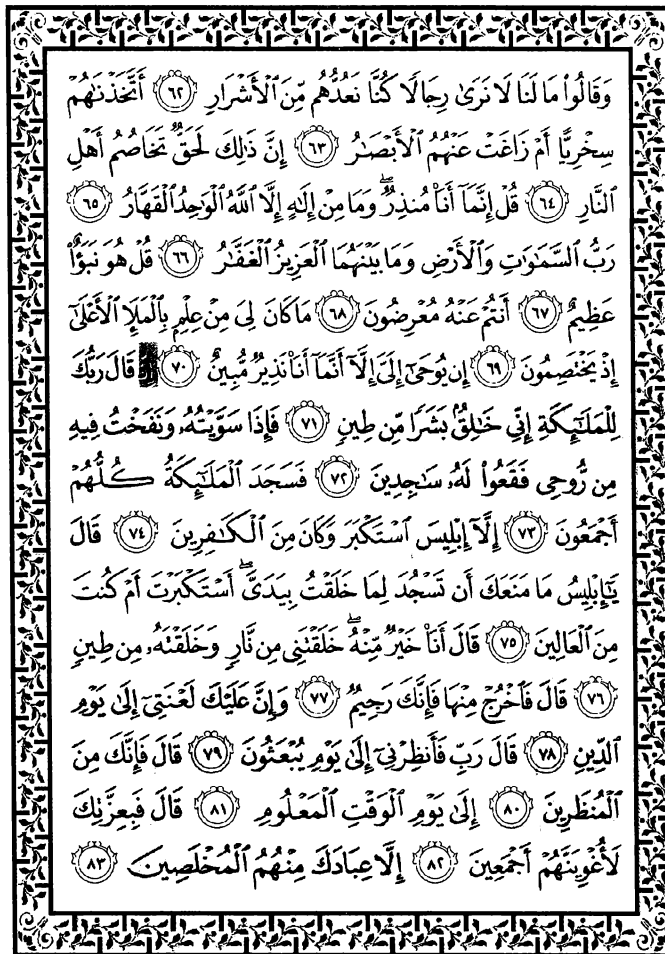 وَقَالُوا۟ مَا لَنَا لَا نَرَىٰ رِجَالًا كُنَّا نَعُدُّهُم مِّنَ ٱلْأَشْرَارِ ٦٢ أَتَّخَذْنَٰهُمْ
سِخْرِيًّا أَمْ زَاغَتْ عَنْهُمُ ٱلْأَبْصَٰرُ ٦٣ إِنَّ ذَٰلِكَ لَحَقٌّ تَخَاصُمُ أَهْلِ
ٱلنَّارِ ٦٤ قُلْ إِنَّمَآ أَنَا۠ مُنذِرٌ ۖ وَمَا مِنْ إِلَٰهٍ إِلَّا ٱللَّهُ ٱلْوَٰحِدُ ٱلْقَهَّارُ ٦٥
رَبُّ ٱلسَّمَٰوَٰتِ وَٱلْأَرْضِ وَمَا بَيْنَهُمَا ٱلْعَزِيزُ ٱلْغَفَّٰرُ ٦٦ قُلْ هُوَ نَبَؤٌا۟
عَظِيمٌ ٦٧ أَنتُمْ عَنْهُ مُعْرِضُونَ ٦٨ مَا كَانَ لِىَ مِنْ عِلْمٍۭ بِٱلْمَلَإِ ٱلْأَعْلَىٰٓ
إِذْ يَخْتَصِمُونَ ٦٩ إِن يُوحَىٰٓ إِلَىَّ إِلَّآ أَنَّمَآ أَنَا۠ نَذِيرٌ مُّبِينٌ ٧٠ إِذْ قَالَ رَبُّكَ
لِلْمَلَٰٓئِكَةِ إِنِّى خَٰلِقٌۢ بَشَرًا مِّن طِينٍ ٧١ فَإِذَا سَوَّيْتُهُۥ وَنَفَخْتُ فِيهِ
مِن رُّوحِى فَقَعُوا۟ لَهُۥ سَٰجِدِينَ ٧٢ فَسَجَدَ ٱلْمَلَٰٓئِكَةُ كُلُّهُمْ
أَجْمَعُونَ ٧٣ إِلَّآ إِبْلِيسَ ٱسْتَكْبَرَ وَكَانَ مِنَ ٱلْكَٰفِرِينَ ٧٤ قَالَ
يَٰٓإِبْلِيسُ مَا مَنَعَكَ أَن تَسْجُدَ لِمَا خَلَقْتُ بِيَدَىَّ ۖ أَسْتَكْبَرْتَ أَمْ كُنتَ
مِنَ ٱلْعَالِينَ ٧٥ قَالَ أَنَا۠ خَيْرٌ مِّنْهُ ۖ خَلَقْتَنِى مِن نَّارٍ وَخَلَقْتَهُۥ مِن طِينٍ
٧٦ قَالَ فَٱخْرُجْ مِنْهَا فَإِنَّكَ رَجِيمٌ ٧٧ وَإِنَّ عَلَيْكَ لَعْنَتِىٓ إِلَىٰ يَوْمِ
ٱلدِّينِ ٧٨ قَالَ رَبِّ فَأَنظِرْنِىٓ إِلَىٰ يَوْمِ يُبْعَثُونَ ٧٩ قَالَ فَإِنَّكَ مِنَ
ٱلْمُنظَرِينَ ٨٠ إِلَىٰ يَوْمِ ٱلْوَقْتِ ٱلْمَعْلُومِ ٨١ قَالَ فَبِعِزَّتِكَ
لَأُغْوِيَنَّهُمْ أَجْمَعِينَ ٨٢ إِلَّا عِبَادَكَ مِنْهُمُ ٱلْمُخْلَصِينَ ٨٣